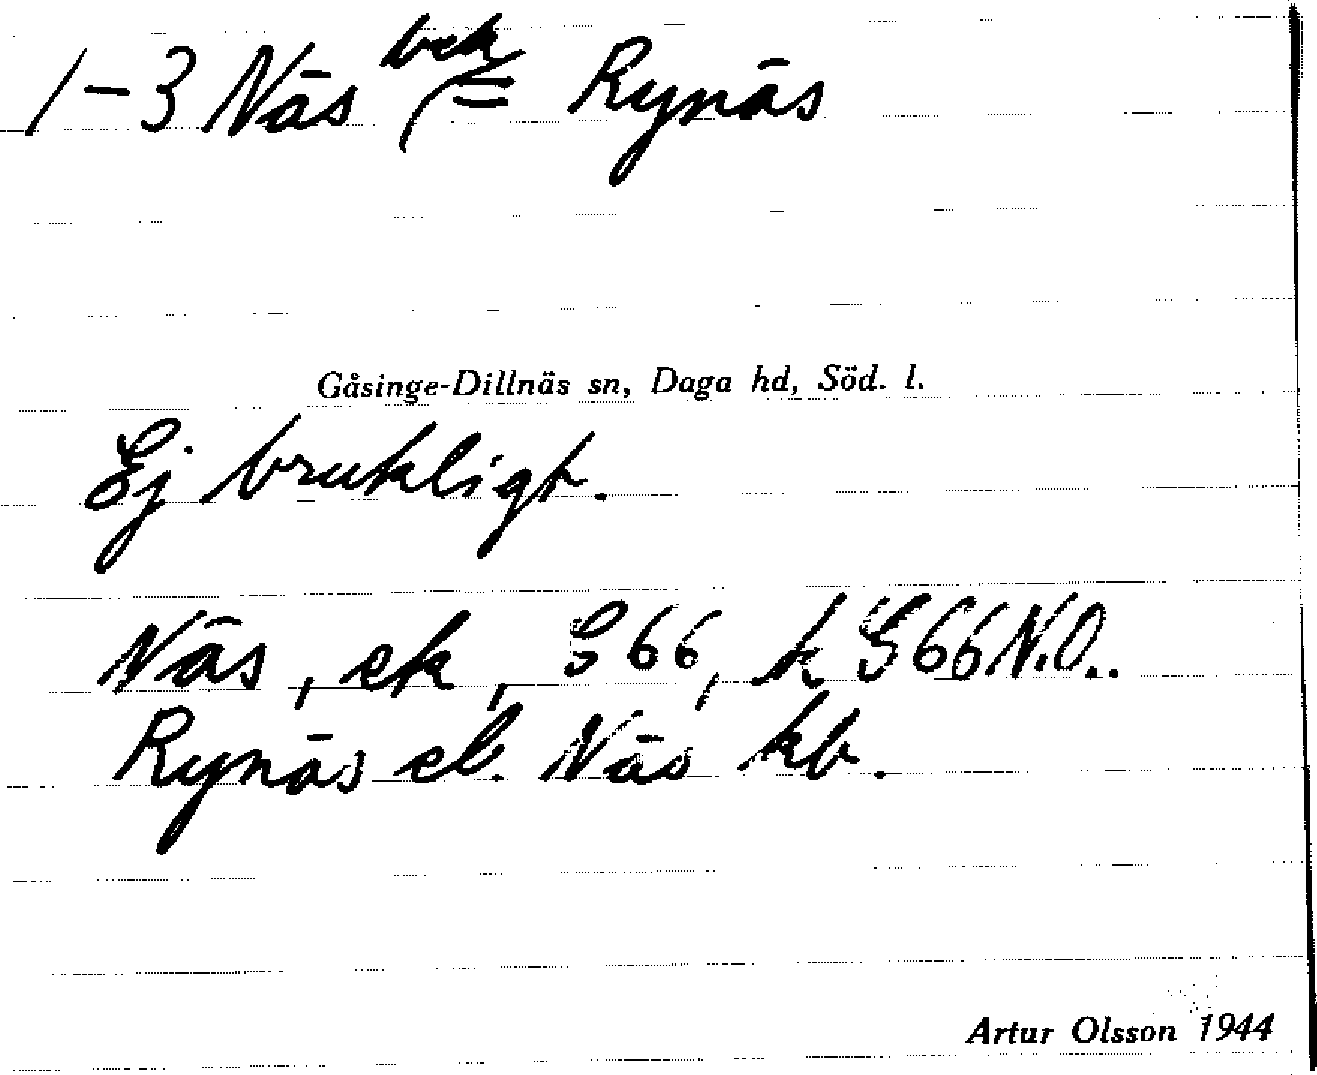 1-3 Näs bek (= Rynäs
Gåsinge-Dillnäs sn, Daga hd, Söd. l.
Ej brukligt.
Näs, ek, G 66, k G66 N.O..
Rynäs el. Näs kb.
Artur Olsson 1944